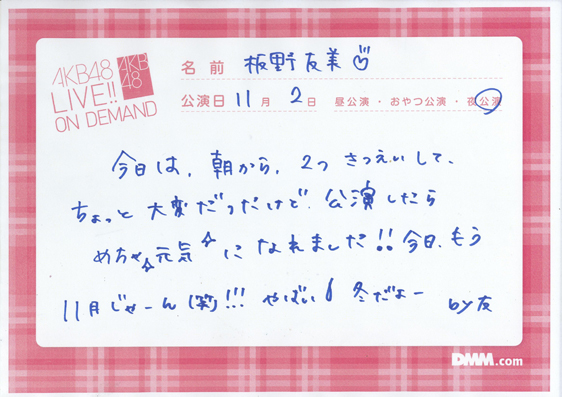 AKB48
LIVE!!
ON DEMAND
AKB
48
名前 板野友美
公演日 11月 2日 昼公演・おやつ公演・夜公演
今日は、朝から、2つ さつえいして、
ちょっと 大変だったけど、公演したら
めちゃ元気 に なれました!!今日、もう
11月じゃーん(笑)!!! やばい! 冬だよー by友
DMM.com